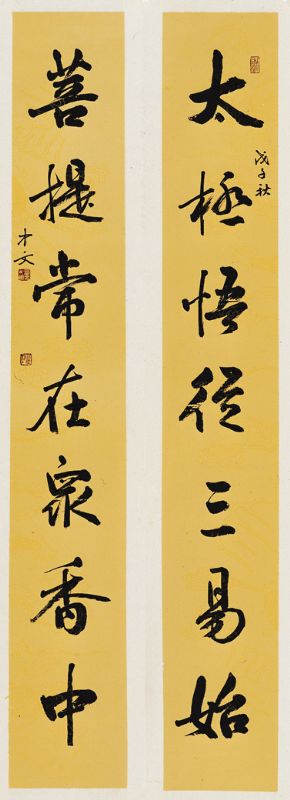 太極悟從三易始
戊子秋
菩提常在衆香中
才文